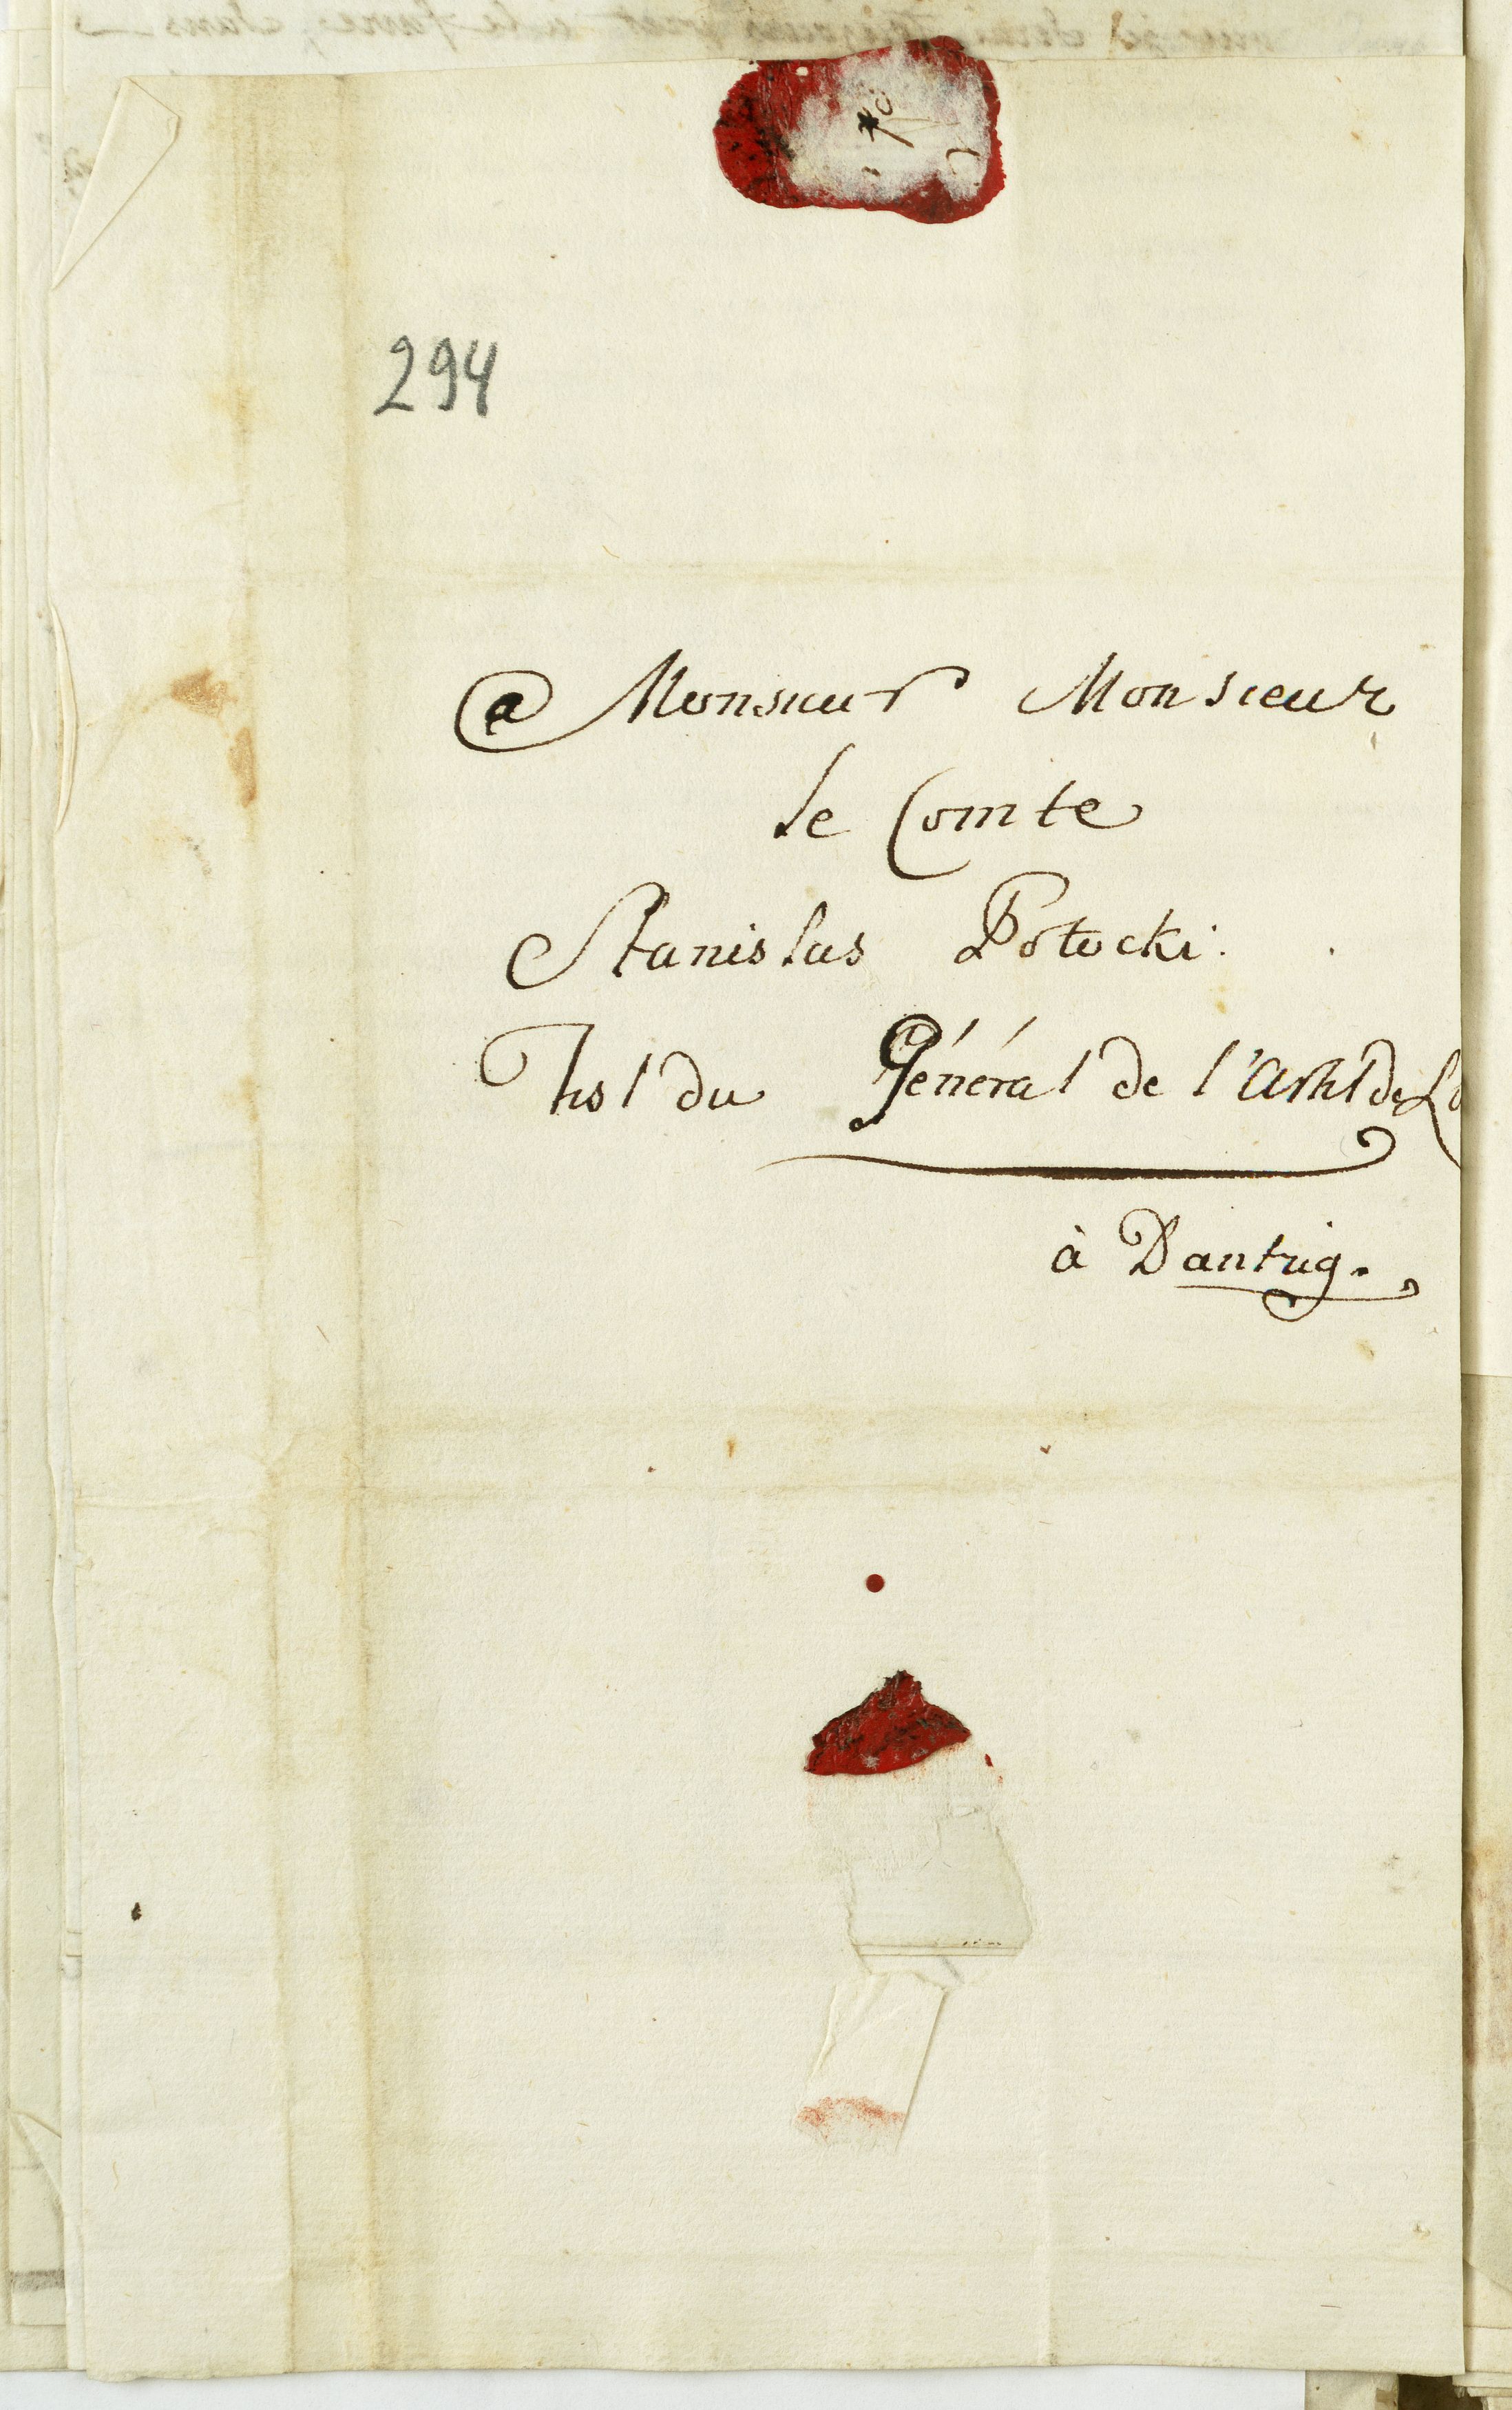 294
a Monsieur Monsieur
le Comte
Stanislas Potocki.
Général de l'Art
à Dantzig.